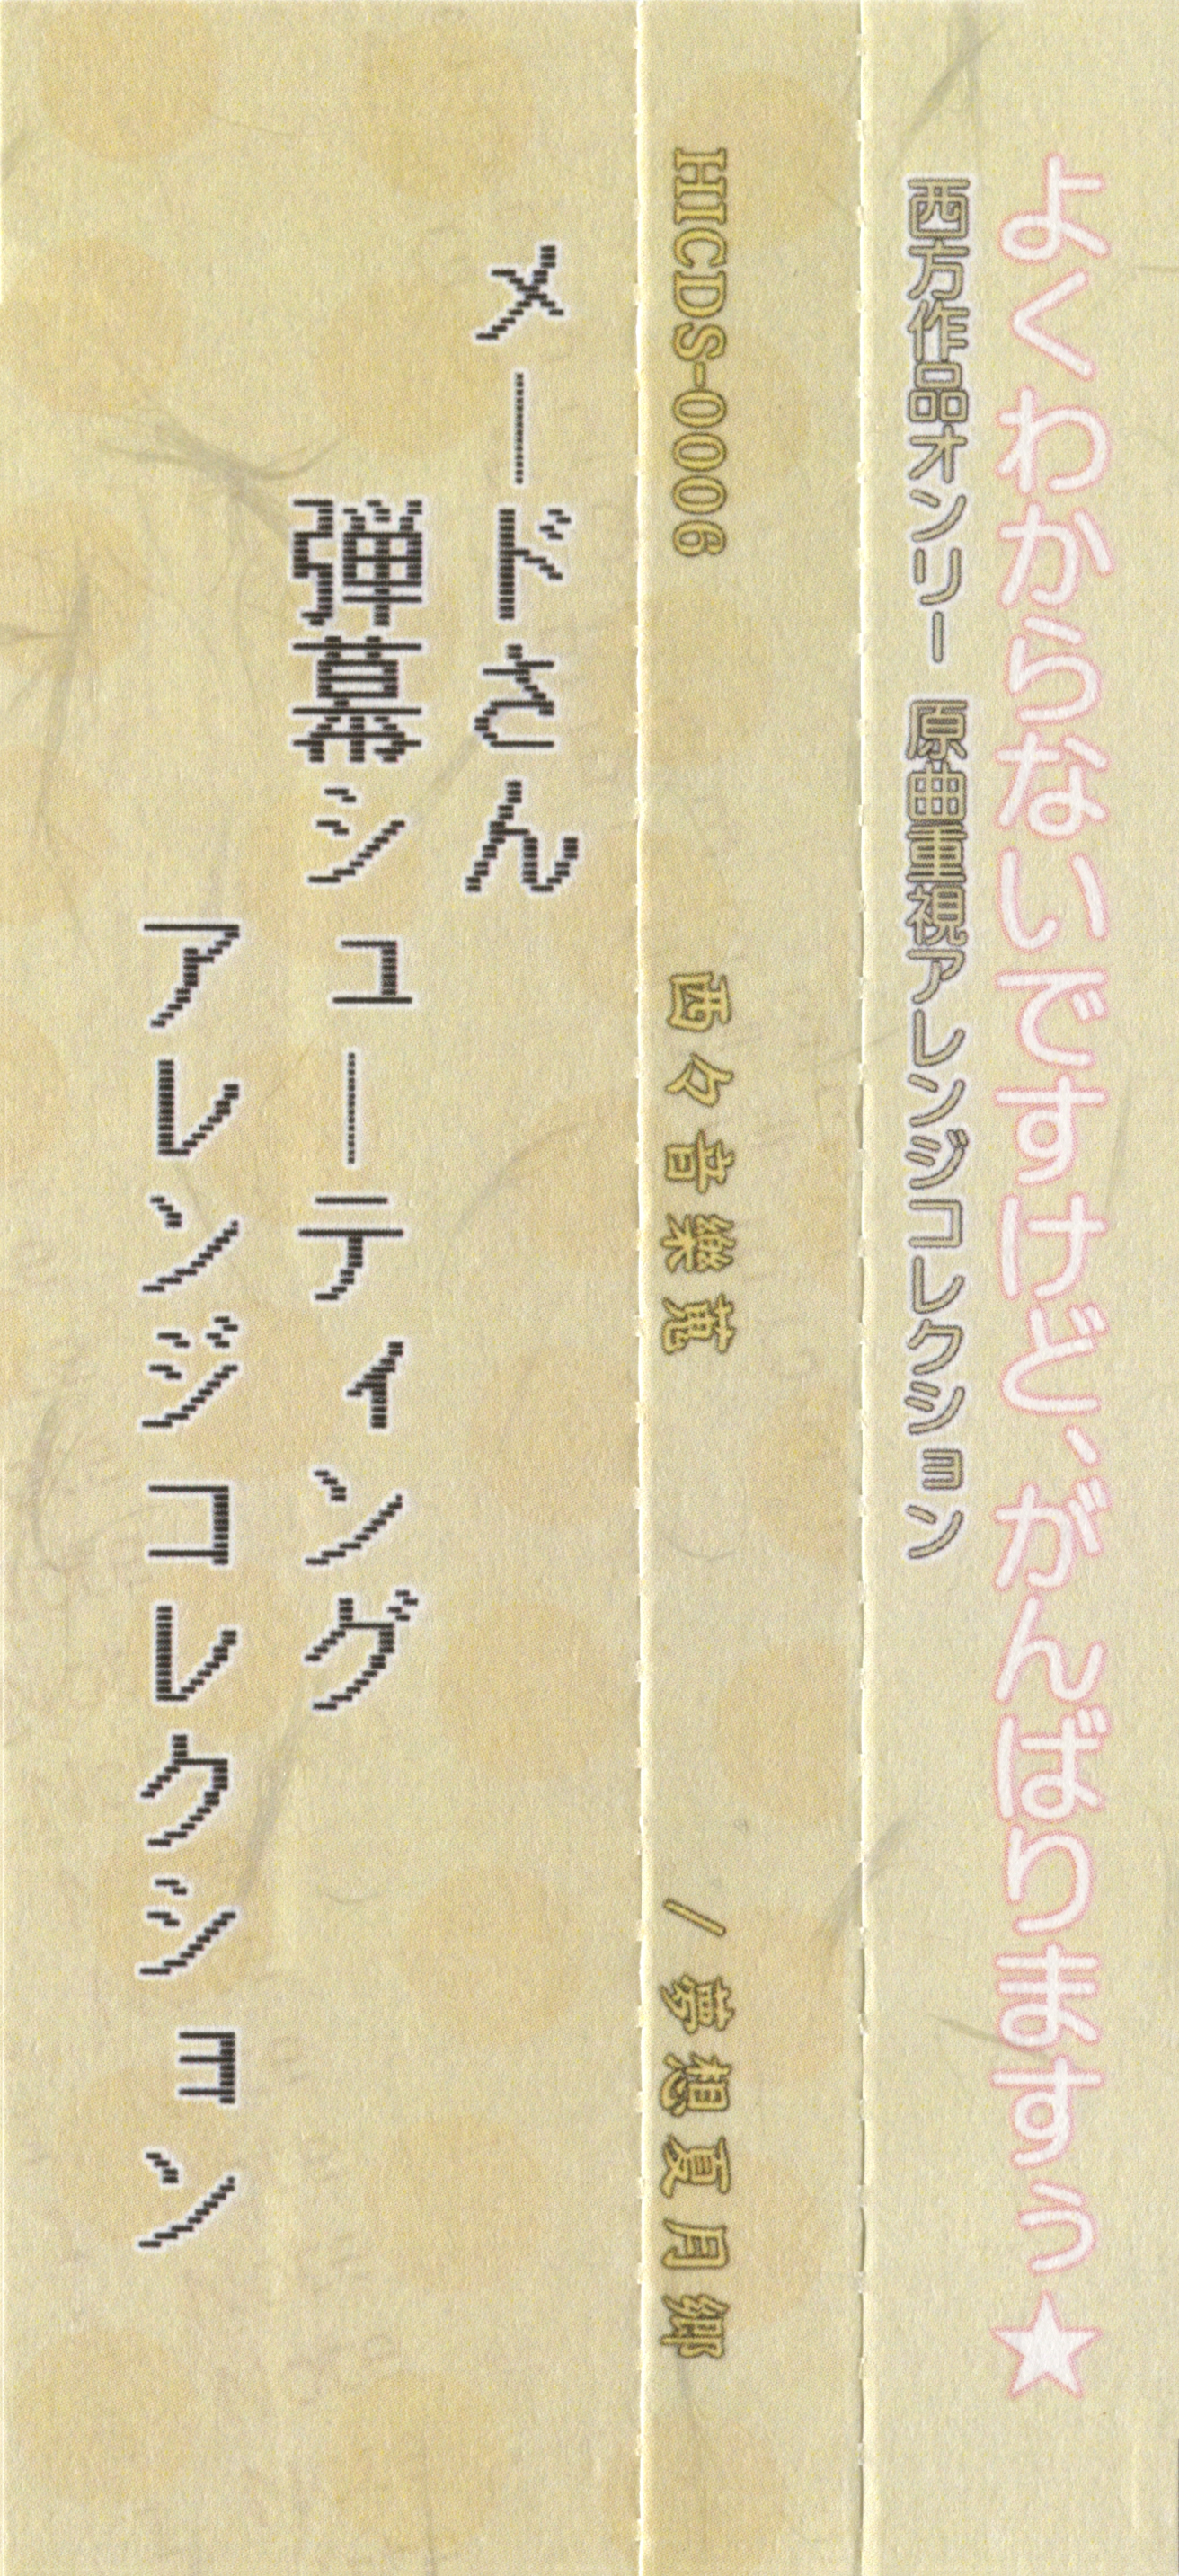 よくわからないですけど、がんばりますぅ★
西方作品オンリー 原曲重視アレンジコレクション
HICDS-0006 西々音樂蒐 / 夢想夏月郷
メードさん
弾幕シューティング
アレンジコレクション